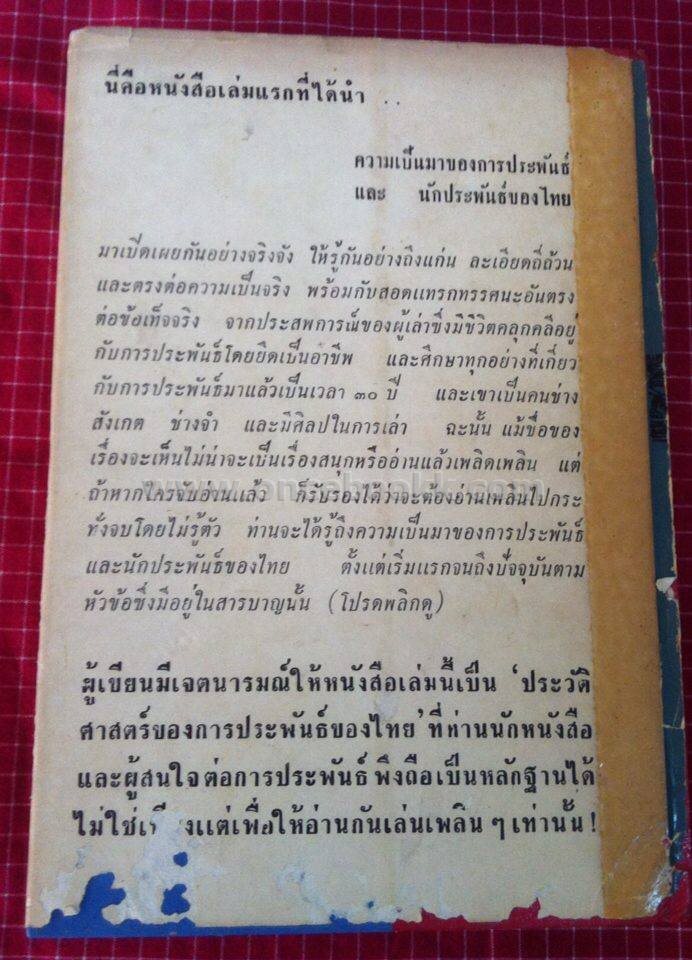 นี่คือหนังสือเล่มแรกที่ได้นำ ..
ความเป็นมาของการประพันธ์
และ นักประพันธ์ของไทย
มาเปิดเผยกันอย่างจริงจัง ให้รู้กันอย่างถึงแก่น ละเอียดถี่ถ้วน
และตรงต่อความเป็นจริง พร้อมกับสอดแทรกทรรศนะอันตรง
ต่อข้อเท็จจริง จากประสพการณ์ของผู้เล่าซึ่งมีชีวิตคลุกคลีอยู่
กับการประพันธ์โดยยึดเป็นอาชีพ และศึกษาทุกอย่างที่เกี่ยว
กับการประพันธ์มาแล้วเป็นเวลา ๓๐ ปี และเขาเป็นคนช่าง
สังเกต ช่างจำ และมีศิลปในการเล่า ฉะนั้น แม้ชื่อของ
เรื่องจะเห็นไม่น่าจะเป็นเรื่องสนุกหรืออ่านแล้วเพลิดเพลิน แต่
ถ้าหากใครจับอ่านแล้ว ก็รับรองได้ว่าจะต้องอ่านเพลินไปกระ
ทั่งจบโดยไม่รู้ตัว ท่านจะได้รู้ถึงความเป็นมาของการประพันธ์
และนักประพันธ์ของไทย ตั้งแต่เริ่มแรกจนถึงปัจจุบันตาม
หัวข้อซึ่งมีอยู่ในสารบาญนั้น (โปรดพลิกดู)
ผู้เขียนมีเจตนารมณ์ให้หนังสือเล่มนี้เป็น 'ประวัติ
ศาสตร์ของการประพันธ์ของไทย' ที่ท่านนักหนังสือ
และผู้สนใจต่อการประพันธ์ พึงถือเป็นหลักฐานได้
ไม่ใช่เพียงแต่เพื่อให้อ่านกันเล่นเพลินๆ เท่านั้น!